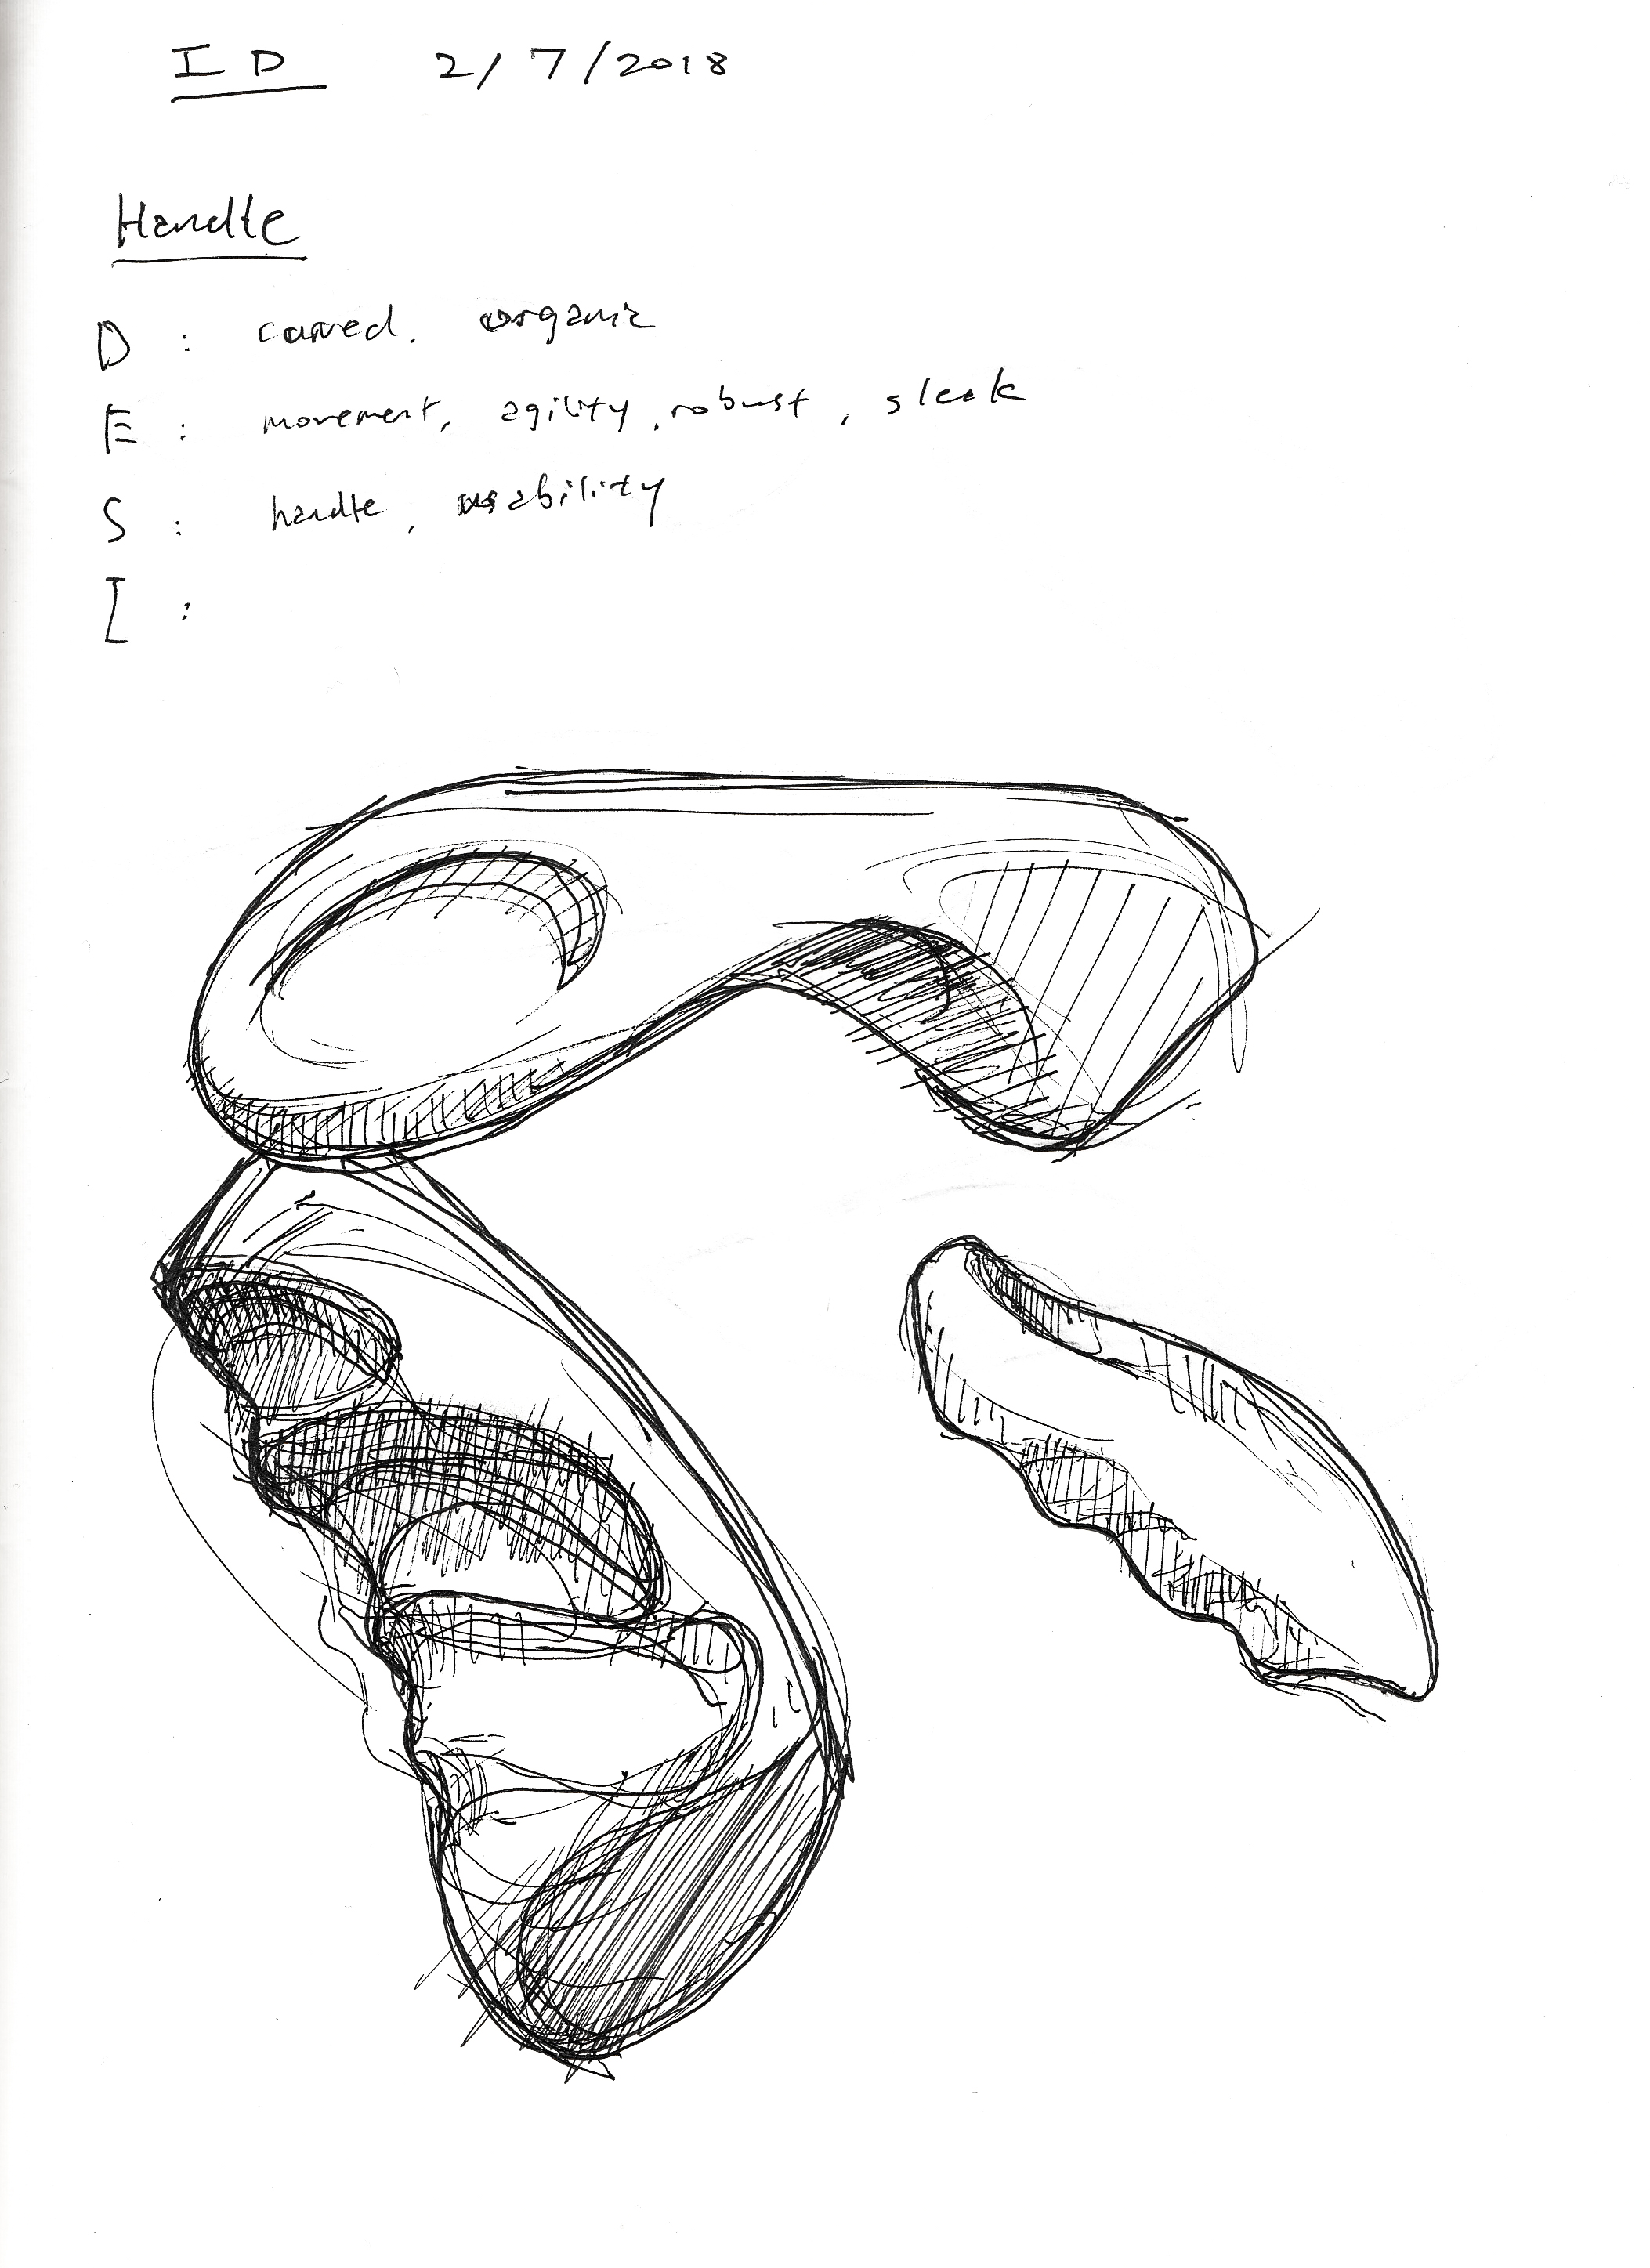 ID 2/7/2018
Handle
D : carved, organic
E : movement, agility, robust, sleek
S : handle, usability
I :